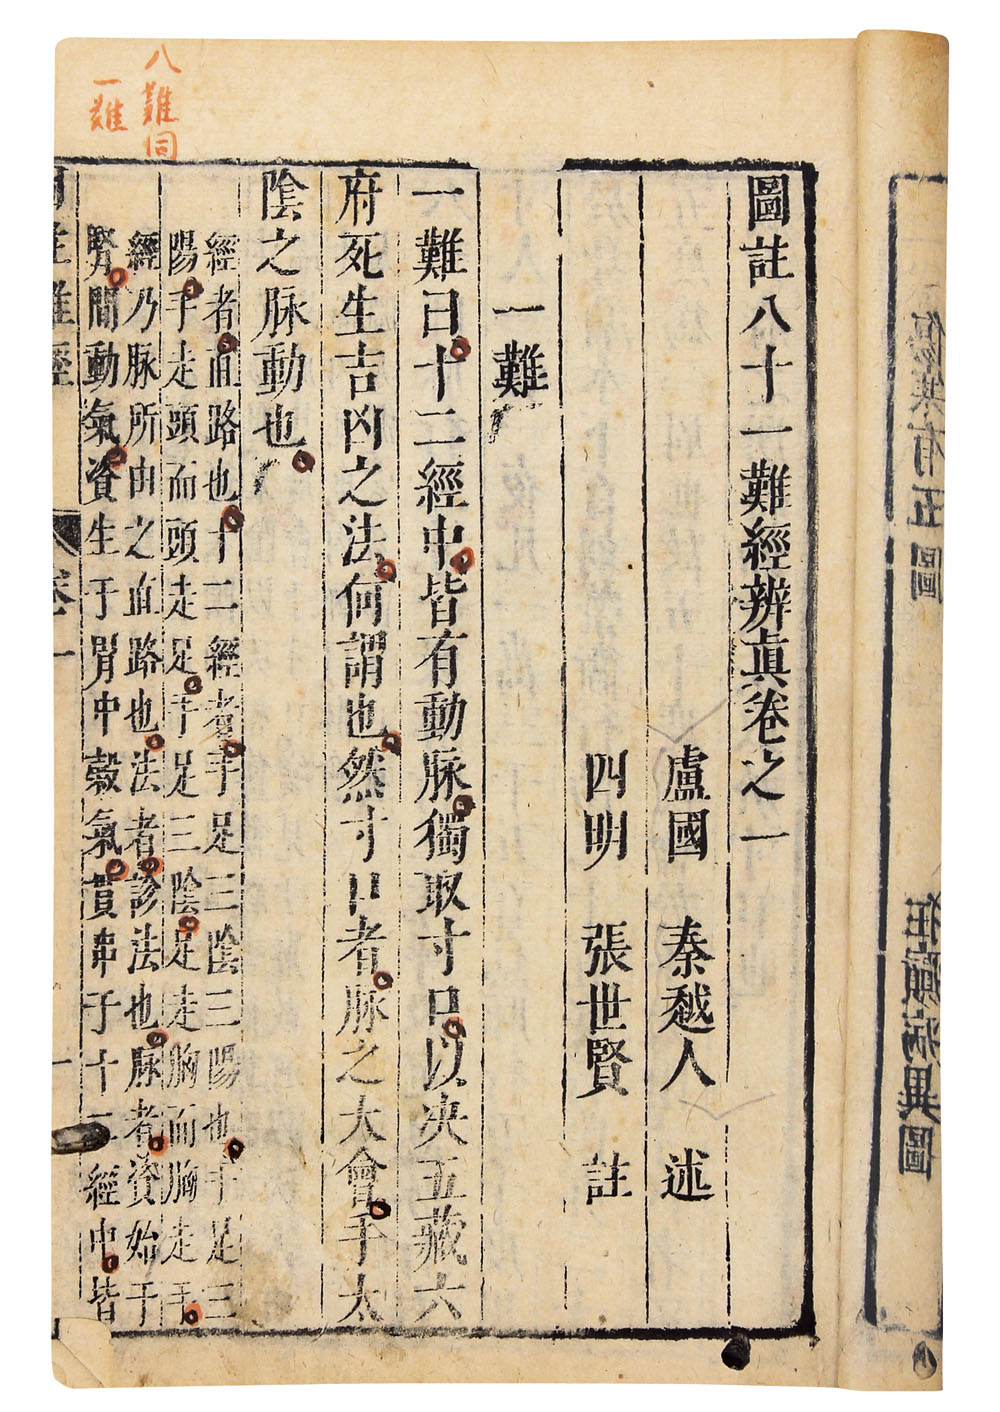 傷寒有五圖
狂癲病異圖
圖註八十一難經辨真卷之一
盧國 秦越人 述
四明 張世賢 註
一難
一難曰十二經中皆有動脉獨取寸口以决五藏六
府死生吉凶之法何謂也然寸口者脉之大會手太
陰之脉動也
經者直路也十二經者手足三陰三陽也手足三
陽手走頭而頭走足手足三陰足走胸而胸走手
經乃脉所由之直路也法者診法也脉者資始于
腎間動氣資生于胃中榖氣貫串于十二經中皆
八難同
一難
圖註難經
卷一
一